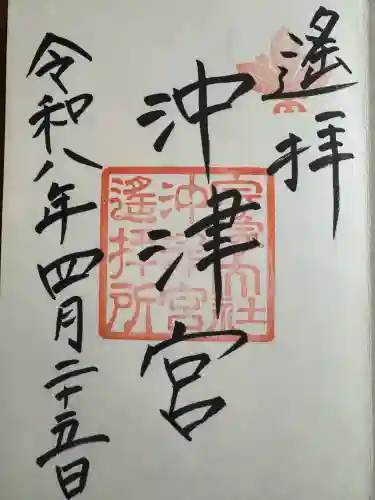 遙拝
沖津宮
宗像大社
沖津宮
遙拝所
令和八年四月二十五日